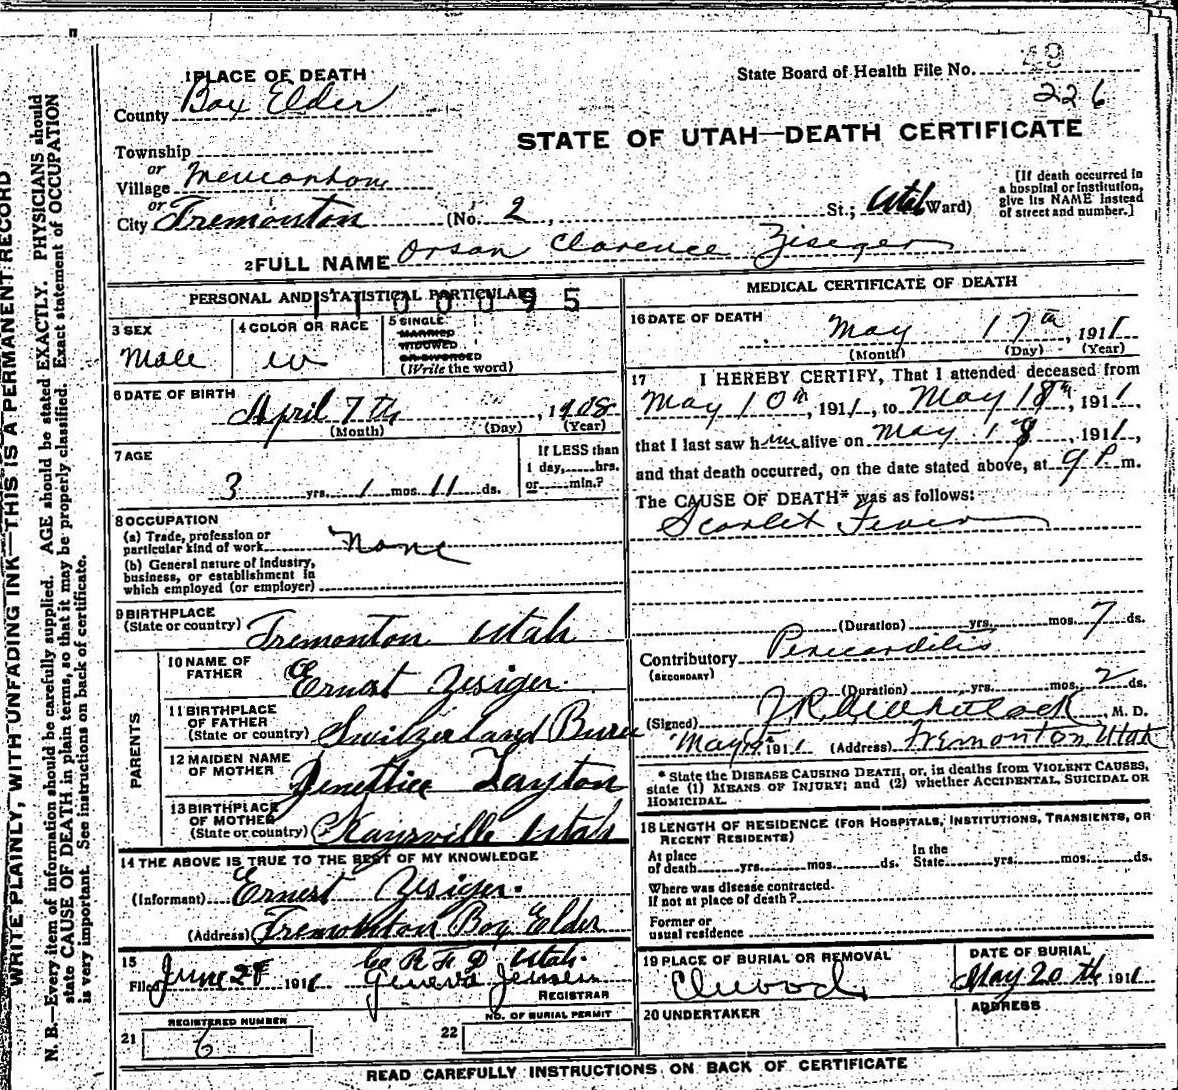 49
State Board of Health File No.
226
1 PLACE OF DEATH
County Box Elder
STATE OF UTAH—DEATH CERTIFICATE
Township
or
Village
or
City Tremonton (No. 2, St.; Utah Ward)
[If death occurred in
a hospital or institution,
give its NAME instead
of street and number.]
2 FULL NAME Orson Clarence Ziseger
PERSONAL AND STATISTICAL PARTICULARS
1100095
3 SEX
Male
4 COLOR OR RACE
W
5 SINGLE
MARRIED
WIDOWED
OR DIVORCED
(Write the word)
6 DATE OF BIRTH
April 7th, 1908
(Month) (Day) (Year)
7 AGE
3 yrs. 1 mos. 11 ds.
If LESS than
1 day, hrs.
or min.?
8 OCCUPATION
(a) Trade, profession or
particular kind of work None
(b) General nature of Industry,
business, or establishment in
which employed (or employer)
9 BIRTHPLACE
(State or country) Tremonton Utah
PARENTS
10 NAME OF
FATHER Ernest Zesiger
11 BIRTHPLACE
OF FATHER
(State or country) Switzerland
12 MAIDEN NAME
OF MOTHER Layton
13 BIRTHPLACE
OF MOTHER
(State or country) Kaysville Utah
14 THE ABOVE IS TRUE TO THE BEST OF MY KNOWLEDGE
(Informant) Ernest Zesiger.
(Address) Tremonton Box Elder
Co R F D Utah.
15
Filed June 28 1911 Geneva Jensen
REGISTRAR
21 REGISTERED NUMBER
6
22 NO. OF BURIAL PERMIT
MEDICAL CERTIFICATE OF DEATH
16 DATE OF DEATH
May 17th, 1911
(Month) (Day) (Year)
17 I HEREBY CERTIFY, That I attended deceased from
May 10th, 1911, to May 18th, 1911,
that I last saw him alive on May 18, 1911,
and that death occurred, on the date stated above, at 9 P m.
The CAUSE OF DEATH* was as follows:
Scarlet Fever
(Duration) yrs. mos. 7 ds.
Contributory Pericarditis
(SECONDARY)
(Duration) yrs. mos. 2 ds.
(Signed) M. D.
May 19 1911 (Address) Tremonton Utah
* State the DISEASE CAUSING DEATH, or, in deaths from VIOLENT CAUSES,
state (1) MEANS OF INJURY; and (2) whether ACCIDENTAL, SUICIDAL OR
HOMICIDAL.
18 LENGTH OF RESIDENCE (FOR HOSPITALS, INSTITUTIONS, TRANSIENTS, OR
RECENT RESIDENTS)
At place
of death yrs. mos. ds.
In the
State yrs. mos. ds.
Where was disease contracted.
If not at place of death?
Former or
usual residence
19 PLACE OF BURIAL OR REMOVAL
Elwood
DATE OF BURIAL
May 20th 1911
20 UNDERTAKER
ADDRESS
READ CAREFULLY INSTRUCTIONS ON BACK OF CERTIFICATE
WRITE PLAINLY, WITH UNFADING INK—THIS IS A PERMANENT RECORD
N. B.—Every item of information should be carefully supplied. AGE should be stated EXACTLY. PHYSICIANS should
state CAUSE OF DEATH in plain terms, so that it may be properly classified. Exact statement of OCCUPATION
is very important. See instructions on back of certificate.